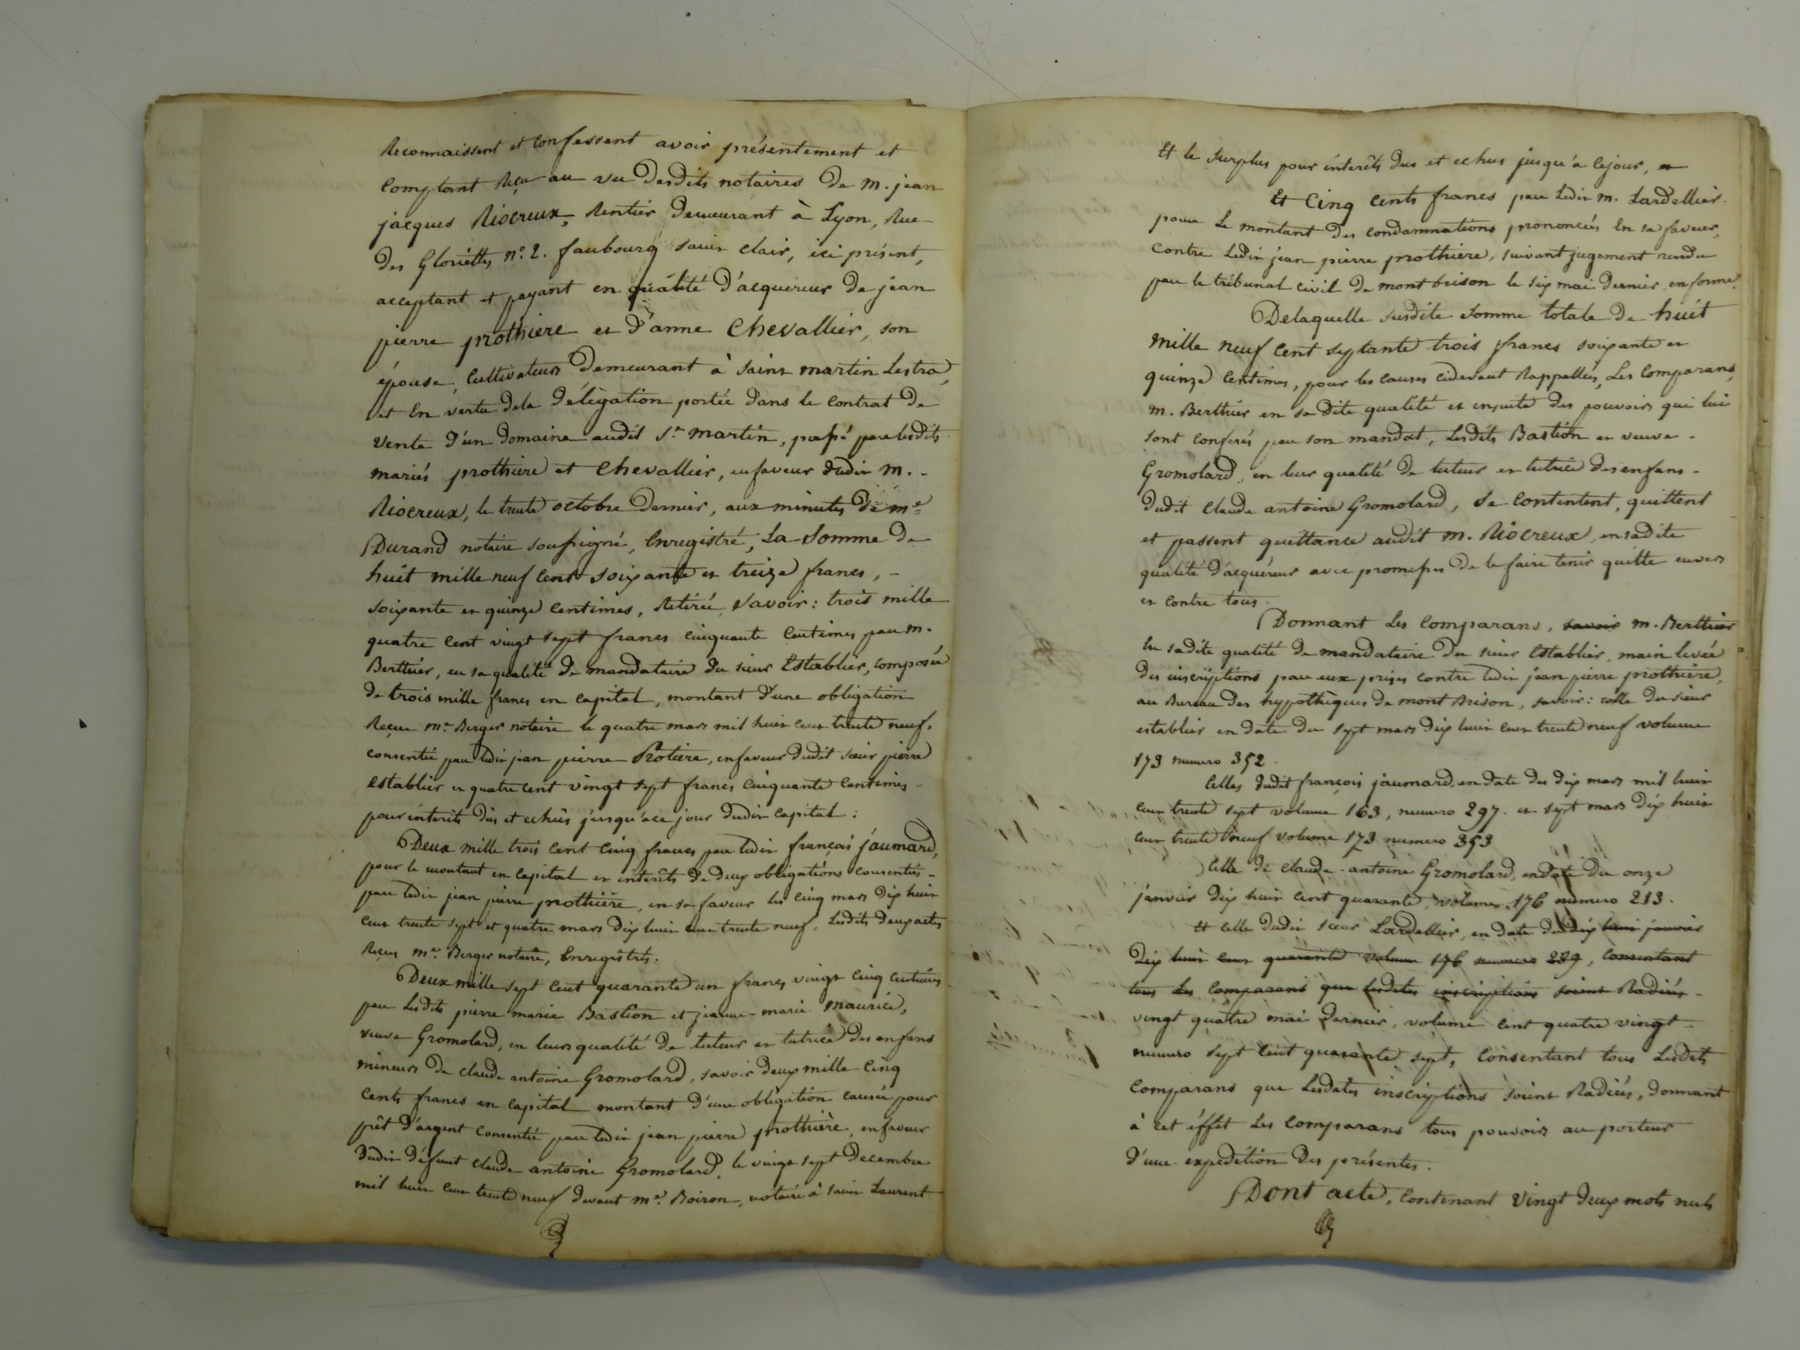 Reconnaissent et confessent avoir présentement et
comptant Reçu au vu desdits notaires de m. jean
jacques Riocreux, Rentier demeurant à Lyon, Rue
des Gloriettes n.o 2. faubourg saint clair, ici présent,
acceptant et payant en qualité d'acquereur de jean
pierre prothière et d'anne Chevallier, son
épouse, Cultivateurs demeurant à saint martin Lestra,
et en vertu dela délégation portée dans le contrat de
vente d'un domaine audit St. martin, passé par lesdits
mariés prothière et Chevallier, en faveur dudit m. -
Riocreux, le trente octobre dernier, aux minutes de me.
Durand notaire soussigné, Enregistré, La Somme de
huit mille neuf cent soixante et treize francs, -
soixante et quinze centimes, Retirée, savoir: trois mille
quatre cent vingt sept francs cinquante centimes par m.
Berthier, en sa qualité de mandataire du sieur Establier, composée
de trois mille francs en capital, montant d'une obligation
Reçue me. Berger notaire le quatre mars mil huit cent trente neuf,
consentie par ledit jean pierre Protière, en faveur dudit sieur pierre
establier et quatre cent vingt sept francs cinquante centimes -
pour intérêts dûs et echus jusqu'a ce jour dudit capital:
Deux mille trois cent cinq francs par ledit françois jaumard,
pour le montant en capital et intérêts de deux obligations consenties -
par ledit jean pierre prothière, en sa faveur les cinq mars dix huit
cent trente sept et quatre mars dix huit cent trente neuf, lesdits deux actes
Reçus me. Berger notaire, Enregistrés.
Deux mille sept cent quarante un francs vingt cinq centimes
par Lesdits pierre marie Bastion et jeanne-marie maurice,
veuve Gromolard, en leurs qualité de tuteur et tutrice des enfans
mineurs de claude antoine Gromolard, savoir deux mille cinq
cents francs en capital montant d'une obligation causée pour
prêt d'argent consentie par ledit jean pierre prothière, en faveur
dudit défunt claude antoine Gromolard, le vingt sept Decembre
mil huit cent trente neuf devant me. Boiron, notaire à saint Laurent
Et le surplus pour intérêts dus et echus jusqu'a ce jour,
Et Cinq cents francs par Ledit m. Lardellier.
pour Le montant des condamnations prononcées En sa faveur,
contre Ledit jean pierre prothière, suivant jugement rendu
par le tribunal civil de montbrison le six mai dernier, en forme.
Delaquelle susdite somme totale de huit
mille neuf cent septante trois francs soixante et
quinze centimes, pour les causes cidevant Rappellées, Les Comparans,
m. Berthier en sa dite qualité et ensuite des pouvoirs qui lui
sont conferés par son mandat, Lesdits Bastion et veuve -
Gromolard, en leur qualité de tuteur et tutrice des enfans -
dudit claude antoine Gromolard, se contentent, quittent
et passent quittance audit m. Riocreux, en sadite
qualité d'acquéreur avec promesses de le faire tenir quitte envers
et contre tous.
Donnant Les Comparans, savoir m. Berthier
En sadite qualité de mandataire du sieur Establier, main levée
des inscriptions par eux prises contre ledit jean pierre prothière,
au Bureau des hypothèques de montBrison, savoir: celle du sieur
establier en date du sept mars dix huit cent trente neuf volume
173 numero 352.
Celles dudit françois jaumard, en date des dix mars mil huit
cent trente sept volume 163, numero 297. et sept mars dix huit
cent trente neuf volume 173 numero 353
Celle de claude-antoine Gromolard, en date du onze
janvier dix huit cent quarante, volume 176 numero 213.
Et celle dudit sieur Lardellier, en date du dix huit janvier
dix huit cent quarante volume 176 numero 289, Consentant
tous Les comparans que lesdites inscriptions soient Radiées -
vingt quatre mai dernier, volume cent quatre vingt -
numero sept cent quarante sept, Consentant tous Lesdits
Comparans que Lesdites inscriptions soient Radiées, donnant
à cet éffet Les Comparans tous pouvoirs au porteur
d'une expedition des présentes.
Dont acte, Contenant vingt deux mots nuls